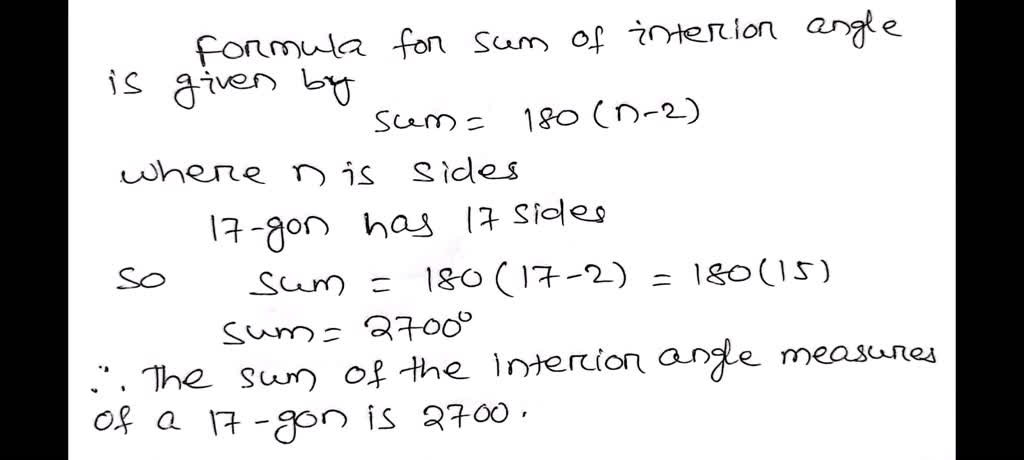 Formula for sum of interior angle
is given by
sum = 180 (n-2)
where n is sides
17-gon has 17 sides
so sum = 180 (17-2) = 180 (15)
sum = 2700°
∴ The sum of the interior angle measures
of a 17-gon is 2700.